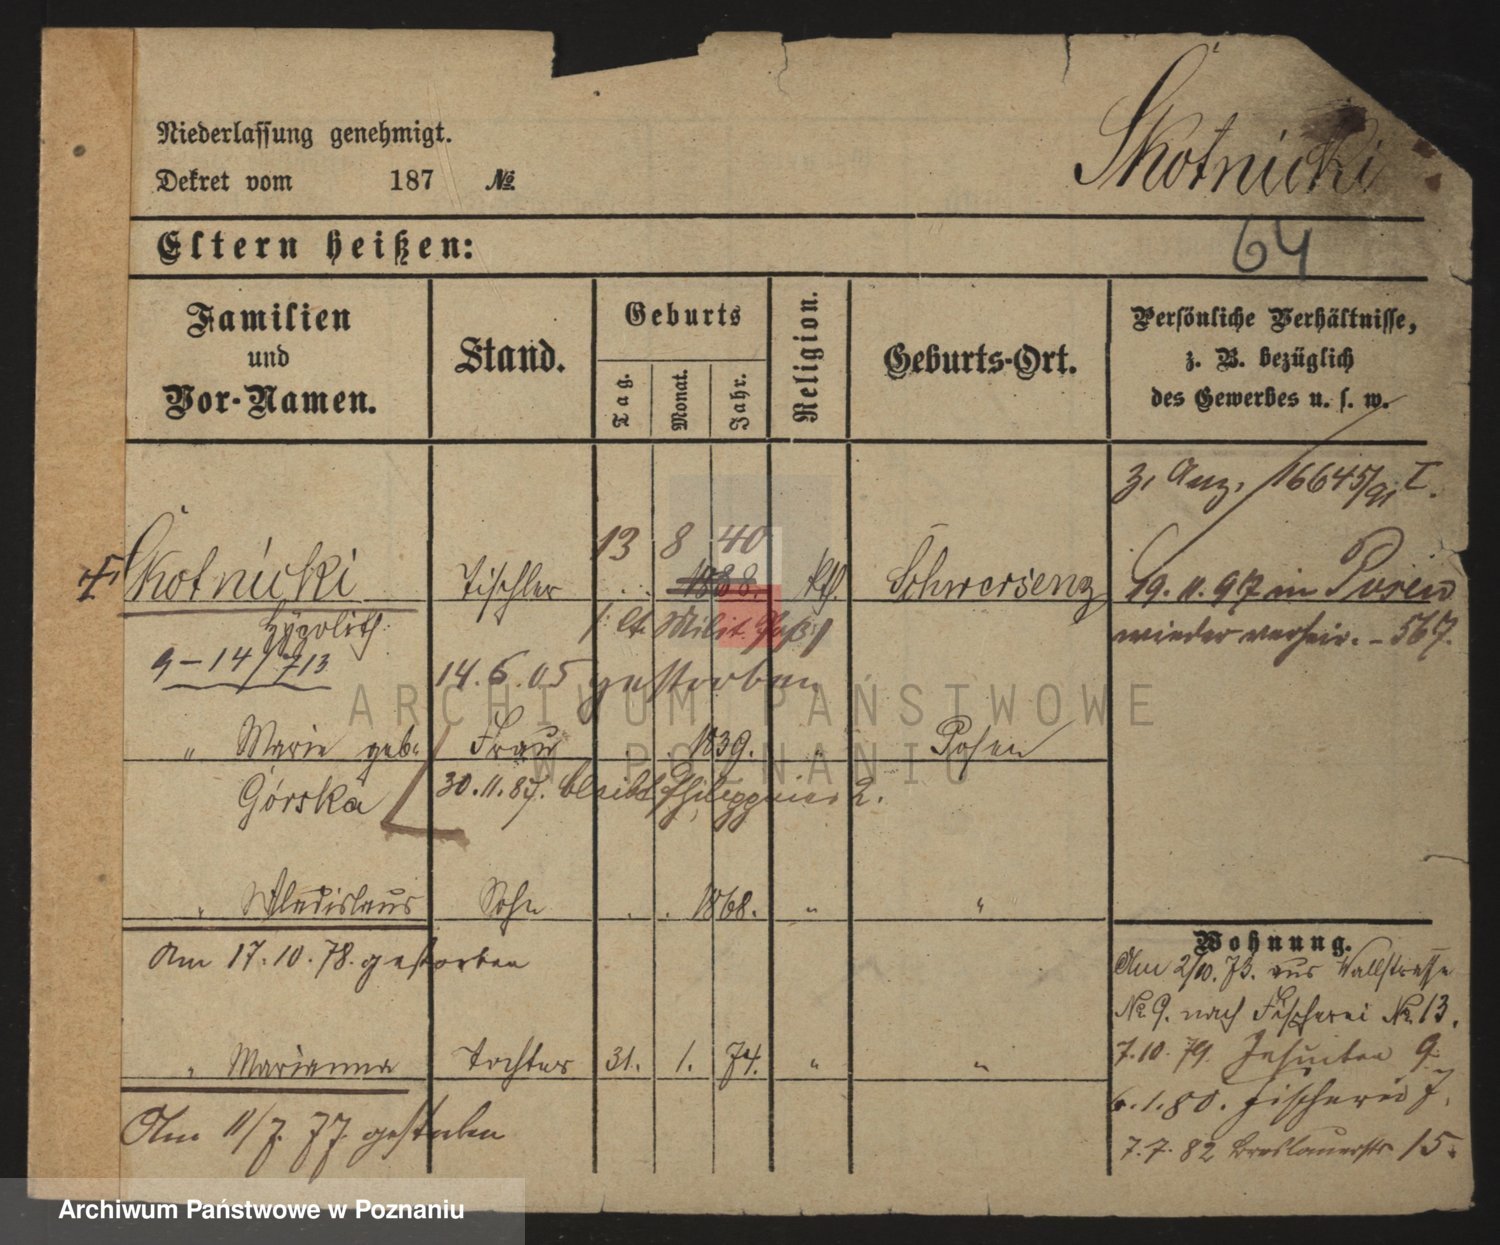 Niederlassung genehmigt.
Dekret vom 187 №
Skotnicki
64
Eltern heißen:
Familien
und
Vor-Namen.
Stand.
Geburts
Tag.
Monat.
Jahr.
Religion.
Geburts-Ort.
Persönliche Verhältnisse,
z. B. bezüglich
des Gewerbes u. s. w.
z. Anz. 16645/91 I.
13 8 40
Skotnicki Tischler 1838. kth. Schwersenz
19. 11. 97 in Posen
Hypolith /: lt. Milit. Paß :/
wieder verheir. - 567.
9 - 14/713
14. 6. 05 gestorben
" Marie geb. Frau . . 1839. " Posen
Górska 30. 11. 87. bleibt 2.
" Wladislaus Sohn . . 1868. " "
Am 17. 10. 78. gestorben
" Marianna Tochter 31. 1. 74. " "
Am 11/7. 77. gestorben
Wohnung.
Am 2/10. 73. aus Wallstrasse
No. 9. nach Fischerei No. 13.
7. 10. 79. Jesuiten 9.
6. 1. 80. Fischerei 7.
7. 7. 82 Breslauerstr 15.
ARCHIWUM PAŃSTWOWE
W POZNANIU
Archiwum Państwowe w Poznaniu